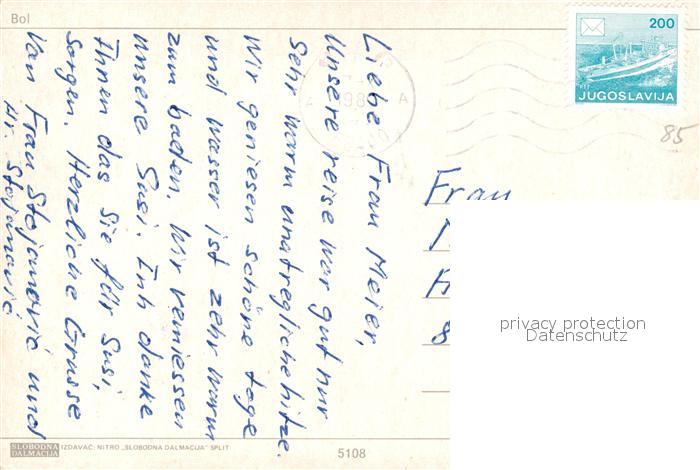 Bol
Liebe Frau Meier,
Unsere reise war gut nur
Sehr warm unatregliche hitze.
Wir geniesen schöne tage
und wasser ist zehr warm
zum baden. Wir vemiessen
unsere Susi. Inh danke
Ihnen das Sie für Susi,
sorgen. Herzliche Grusse
Van Frau Stojanović und
Hr. Stojanović
200
JUGOSLAVIJA
85
Frau
privacy protection
Datenschutz
SLOBODNA
DALMACIJA
IZDAVAČ: NITRO „SLOBODNA DALMACIJA" SPLIT
5108